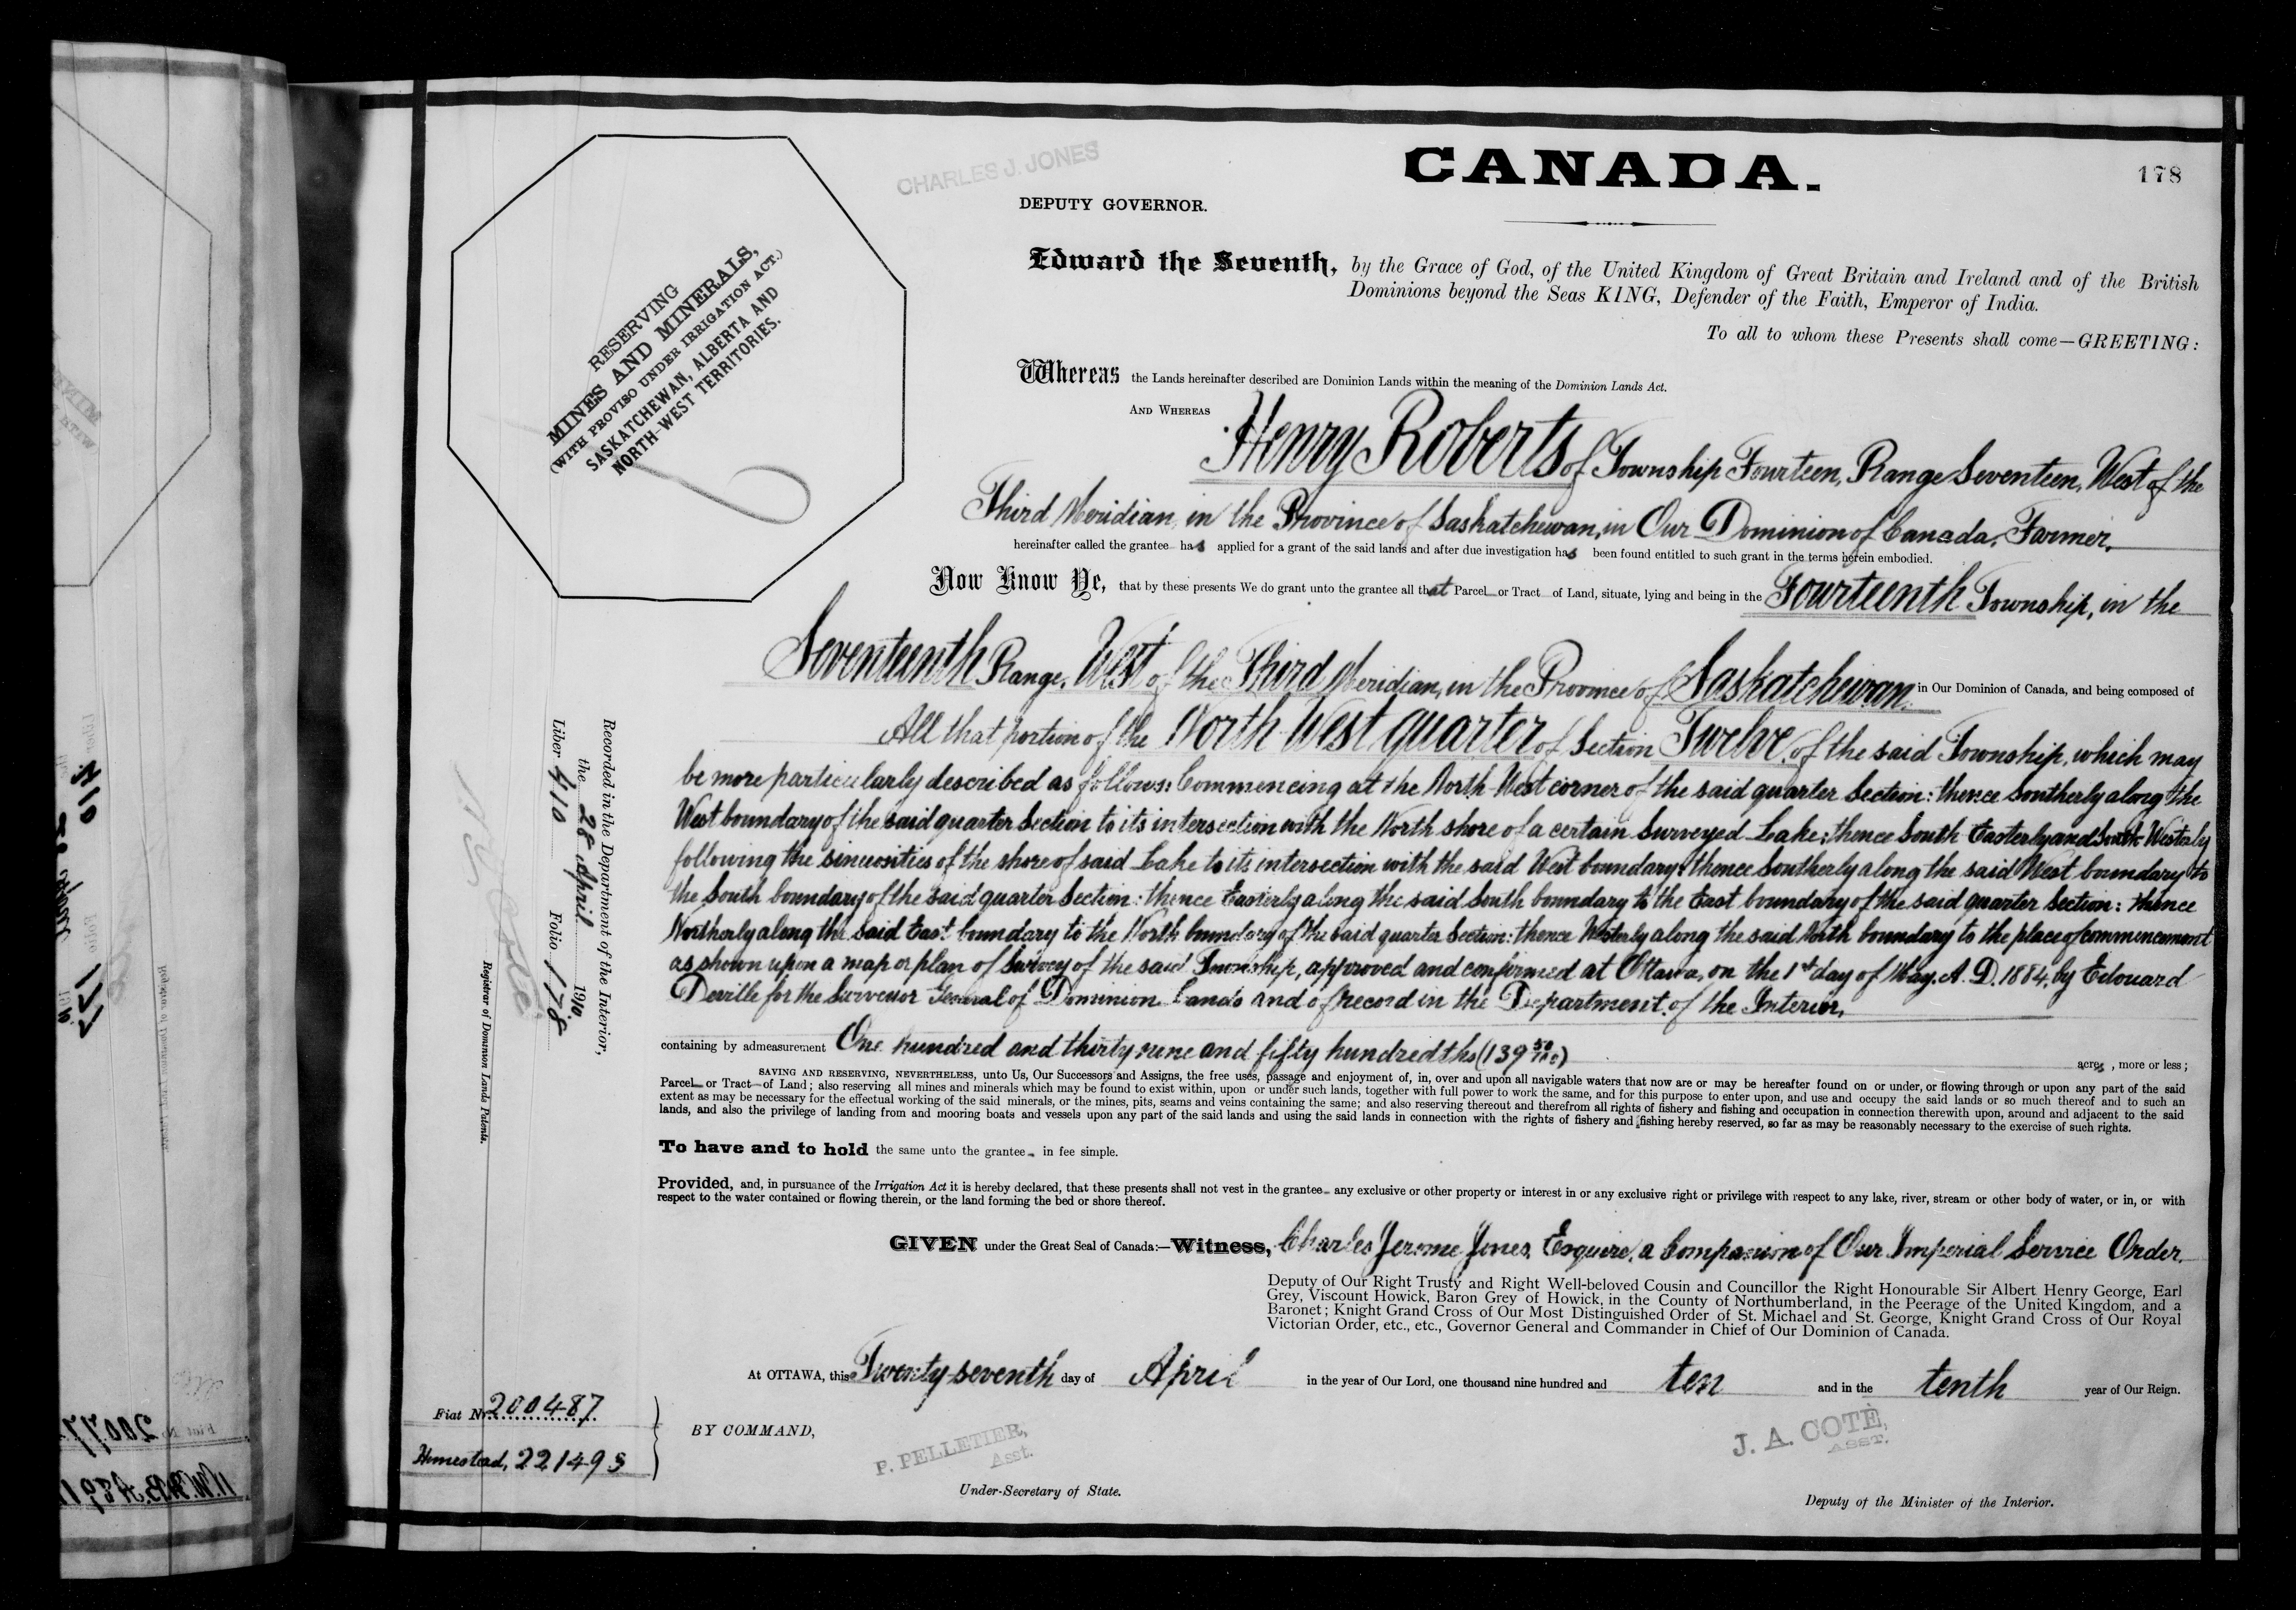 CANADA.
178
CHARLES J. JONES
DEPUTY GOVERNOR.
Edward the Seventh, by the Grace of God, of the United Kingdom of Great Britain and Ireland and of the British
Dominions beyond the Seas KING, Defender of the Faith, Emperor of India.
To all to whom these Presents shall come—GREETING:
RESERVING
MINES AND MINERALS,
(WITH PROVISO UNDER IRRIGATION ACT.)
SASKATCHEWAN, ALBERTA AND
NORTH-WEST TERRITORIES.
Whereas the Lands hereinafter described are Dominion Lands within the meaning of the Dominion Lands Act.
AND WHEREAS Henry Roberts of Township Fourteen, Range Seventeen, West of the
Third Meridian, in the Province of Saskatchewan, in Our Dominion of Canada, Farmer,
hereinafter called the grantee has applied for a grant of the said lands and after due investigation has been found entitled to such grant in the terms herein embodied.
Now Know Ye, that by these presents We do grant unto the grantee all that Parcel or Tract of Land, situate, lying and being in the Fourteenth Township, in the
Seventeenth Range, West of the Third Meridian, in the Province of Saskatchewan in Our Dominion of Canada, and being composed of
All that portion of the North West quarter of Section Twelve, of the said Township, which may
be more particularly described as follows: Commencing at the North-West corner of the said quarter Section: thence Southerly along the
West boundary of the said quarter Section to its intersection with the North shore of a certain Surveyed Lake: thence South Easterly and South Westerly
following the sinuosities of the shore of said Lake to its intersection with the said West boundary: thence Southerly along the said West boundary to
the South boundary of the said quarter Section: thence Easterly along the said South boundary to the East boundary of the said quarter Section: thence
Northerly along the said East boundary to the North boundary of the said quarter Section: thence Westerly along the said North boundary to the place of commencement
as shown upon a map or plan of Survey of the said Township, approved and confirmed at Ottawa, on the 1st day of May, A. D. 1884, by Edouard
Deville for the Surveyor General of Dominion Lands and of record in the Department of the Interior,
containing by admeasurement One hundred and thirty nine and fifty hundredths (139 50/100) acres, more or less;
SAVING AND RESERVING, NEVERTHELESS, unto Us, Our Successors and Assigns, the free uses, passage and enjoyment of, in, over and upon all navigable waters that now are or may be hereafter found on or under, or flowing through or upon any part of the said
Parcel or Tract of Land; also reserving all mines and minerals which may be found to exist within, upon or under such lands, together with full power to work the same, and for this purpose to enter upon, and use and occupy the said lands or so much thereof and to such an
extent as may be necessary for the effectual working of the said minerals, or the mines, pits, seams and veins containing the same; and also reserving thereout and therefrom all rights of fishery and fishing and occupation in connection therewith upon, around and adjacent to the said
lands, and also the privilege of landing from and mooring boats and vessels upon any part of the said lands and using the said lands in connection with the rights of fishery and fishing hereby reserved, so far as may be reasonably necessary to the exercise of such rights.
To have and to hold the same unto the grantee in fee simple.
Provided, and, in pursuance of the Irrigation Act it is hereby declared, that these presents shall not vest in the grantee any exclusive or other property or interest in or any exclusive right or privilege with respect to any lake, river, stream or other body of water, or in, or with
respect to the water contained or flowing therein, or the land forming the bed or shore thereof.
GIVEN under the Great Seal of Canada:—Witness, Charles Jerome Jones, Esquire, a Companion of Our Imperial Service Order,
Deputy of Our Right Trusty and Right Well-beloved Cousin and Councillor the Right Honourable Sir Albert Henry George, Earl
Grey, Viscount Howick, Baron Grey of Howick, in the County of Northumberland, in the Peerage of the United Kingdom, and a
Baronet; Knight Grand Cross of Our Most Distinguished Order of St. Michael and St. George, Knight Grand Cross of Our Royal
Victorian Order, etc., etc., Governor General and Commander in Chief of Our Dominion of Canada.
At OTTAWA, this Twenty-seventh day of April in the year of Our Lord, one thousand nine hundred and ten and in the tenth year of Our Reign.
BY COMMAND,
P. PELLETIER,
Asst.
Under-Secretary of State.
J. A. COTÉ,
ASST.
Deputy of the Minister of the Interior.
Fiat No. 200487
Homestead, 221493
Recorded in the Department of the Interior,
the 28 April 1910,
Liber 410 Folio 178
Registrar of Dominion Lands Patents.